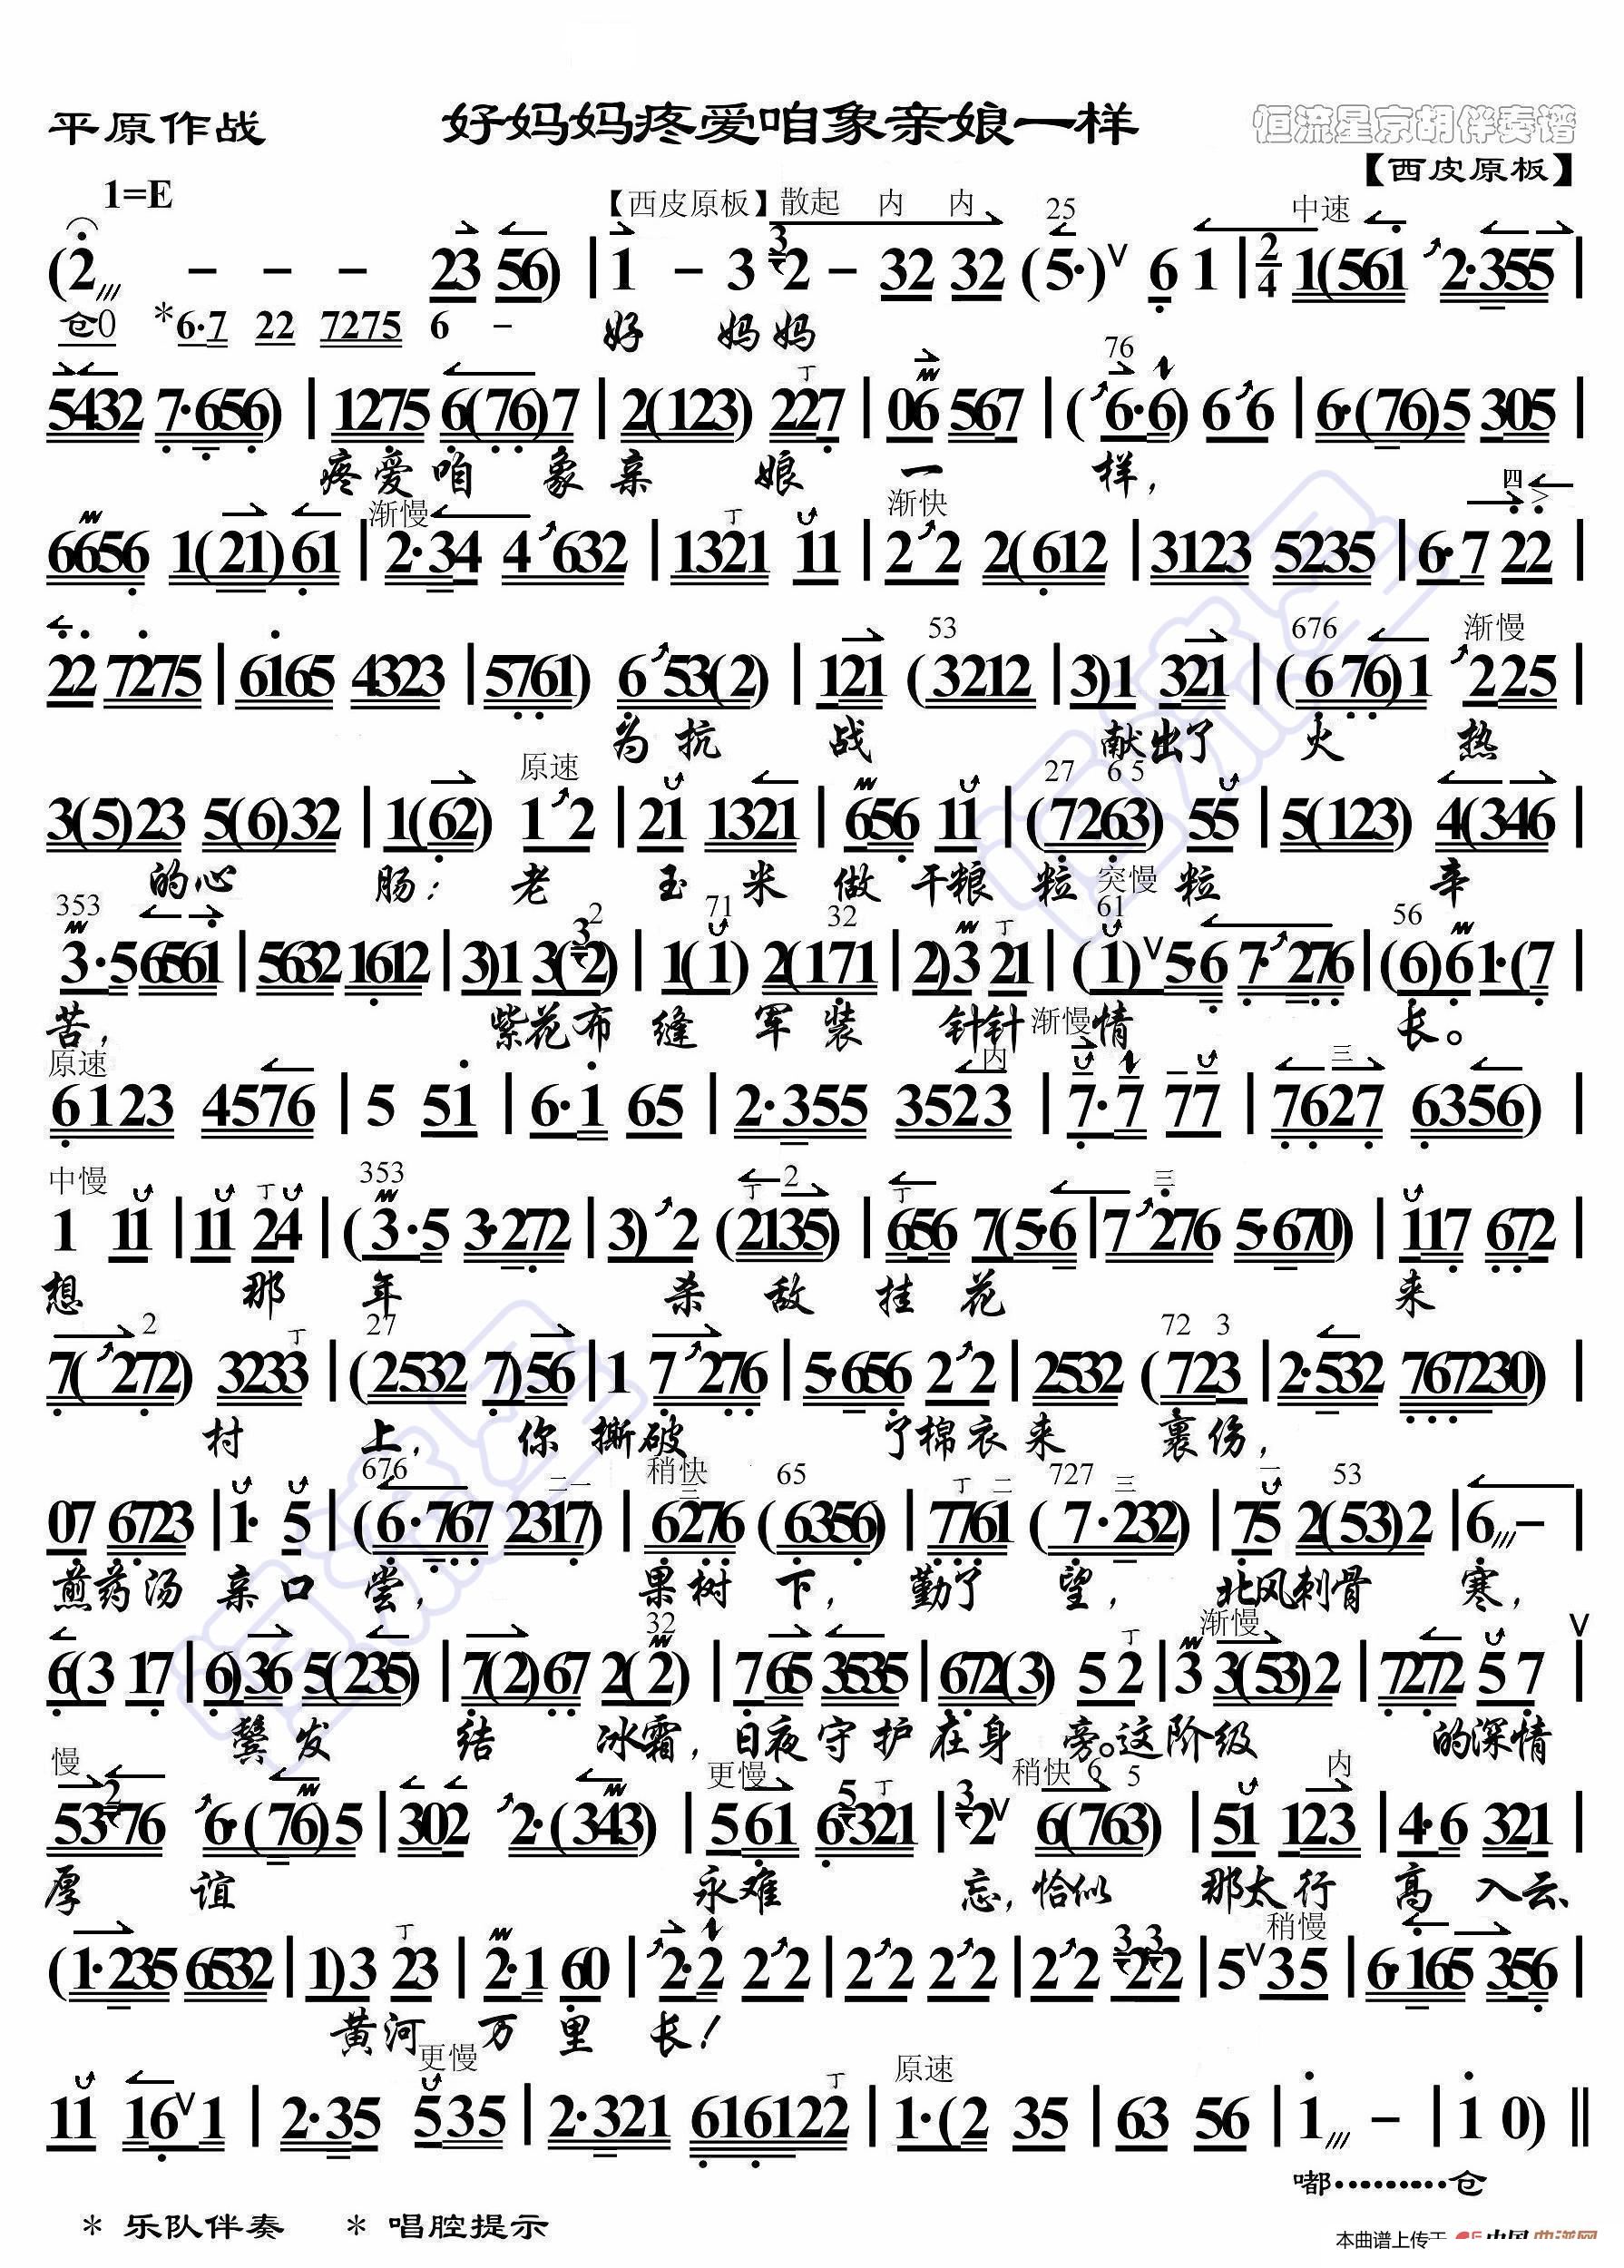 平原作战 好妈妈疼爱咱象亲娘一样 恒流星京胡伴奏谱
【西皮原板】
1=E 【西皮原板】散起 内 内 25 中速
(2 - - - 23 56) | 1 - 3 3 2 - 32 32 (5·) V 6 1 | 2/4 1(561 2·355 |
仓0 *6·7 22 7275 6 - 好 妈妈
76 丁
5432 7·656) | 1275 6(76)7 | 2(123) 227 | 06 567 | (6·6) 6 6 | 6·(76)5 305 |
疼爱咱 象亲 娘 一 样，
渐慢 丁 渐快 四
6656 1(21)61 | 2·34 4 632 | 1321 11 | 2 2 2(612 | 3123 5235 | 6·7 22 |
53 676 渐慢
22 7275 | 6165 4323 | 5761) 6 53(2) | 121 (3212 | 3)1 321 | (676)1 225 |
为抗 战 献出了 火 热
原速 27 6 5
3(5)23 5(6)32 | 1(62) 1 2 | 21 1321 | 656 11 | (7263) 55 | 5(123) 4(346 |
的心 肠：老 玉 米 做 干粮 粒 突慢 粒 辛
353 3 2 71 32 丁 61 56
3·5 6561 | 5632 1612 | 3)1 3(2) | 1(1) 2(171 | 2)3 21 | (1) V 5·6 7·276 | (6)61·(7 |
苦， 紫花布 缝 军 装 针针 渐慢 情 长。
原速 内 三
6123 4576 | 5 51 | 6·1 65 | 2·355 3523 | 7·7 77 | 7627 6356) |
中慢 丁 353 丁 2 丁 三
1 11 | 11 24 | (3·5 3·272 | 3) 2 (2135) | 656 7(5·6 | 7 276 5·670) | 117 672 |
想 那 年 杀 敌 挂 花 来
2 丁 27 72 3
7(272) 3233 | (2532 7)56 | 1 7 276 | 5·656 2 2 | 2532 (723 | 2·532 767230) |
村 上，你 撕破 了棉衣来 裹伤，
676 二一 稍快 三 65 丁 二 727 三 一 53
07 6723 | 1· 5 | (6·767 2317) | 6276 (6356) | 7761 (7·232) | 75 2(53)2 | 6 - |
煎药汤 亲 口 尝， 果树 下，勤了 望， 北风刺骨 寒，
32 丁 渐慢 V
6(3 17 | 6)36 5(235) | 7(2)67 2(2) | 765 3535 | 672(3) 5 2 | 3 3(53)2 | 7272 5 7 |
鬓 发 结 冰霜，日夜守护在身 旁。这阶级 的深情
慢 2 更慢 5 丁 3 稍快 6 5 内
5376 6·(76)5 | 302 2·(343) | 561 6·321 | 2 V 6(763) | 51 123 | 4·6 321 |
厚 谊 永难 忘，恰似 那太行 高 入云，
丁 3 3 稍慢
(1·235 6532 | 1)3 23 | 2·1 60 | 2·2 2 2 | 2 2 2 2 | 2 2 22 | 5 V 35 | 6·165 356 |
黄河 万 里 长！
更慢 丁 原速
11 16 V 1 | 2·35 535 | 2·321 616122 | 1·(2 35 | 63 56 | 1 - | 1 0) ‖
嘟………仓
* 乐队伴奏 * 唱腔提示
本曲谱上传于 中国曲谱网